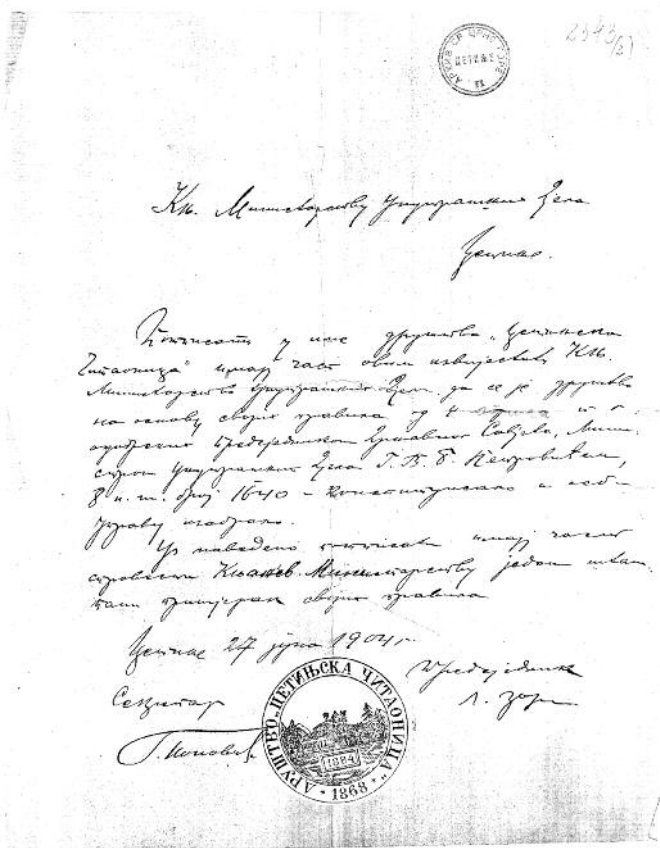 2343/2)
АРХИВ СР ЦРНЕ ГОРЕ
ЦЕТИЊЕ
Књ. Министарству Унутрашњих Дјела
Цетиње.
Потписати у име друштва „Цетињска
Читаоница" имају част овим извијестит Књ.
Министарство Унутрашњих Дјела да се је друштво
на основу својих правила од
одобрених Предсједником Државног Савјета, Мини-
стром Унутрашњих Дјела Г. В. Б. Петровићем,
број 1640 – конституисано и себи
управу изабрало.
Уз наведено потписати имају част
спровести Књажев. Министарству један штам-
пани примјерак својих правила
Цетиње 27 јуна 1904 г.
Секретар
Предсједник
Поповић
ДРУШТВО „ЦЕТИЊСКА ЧИТАОНИЦА"
1884
1868